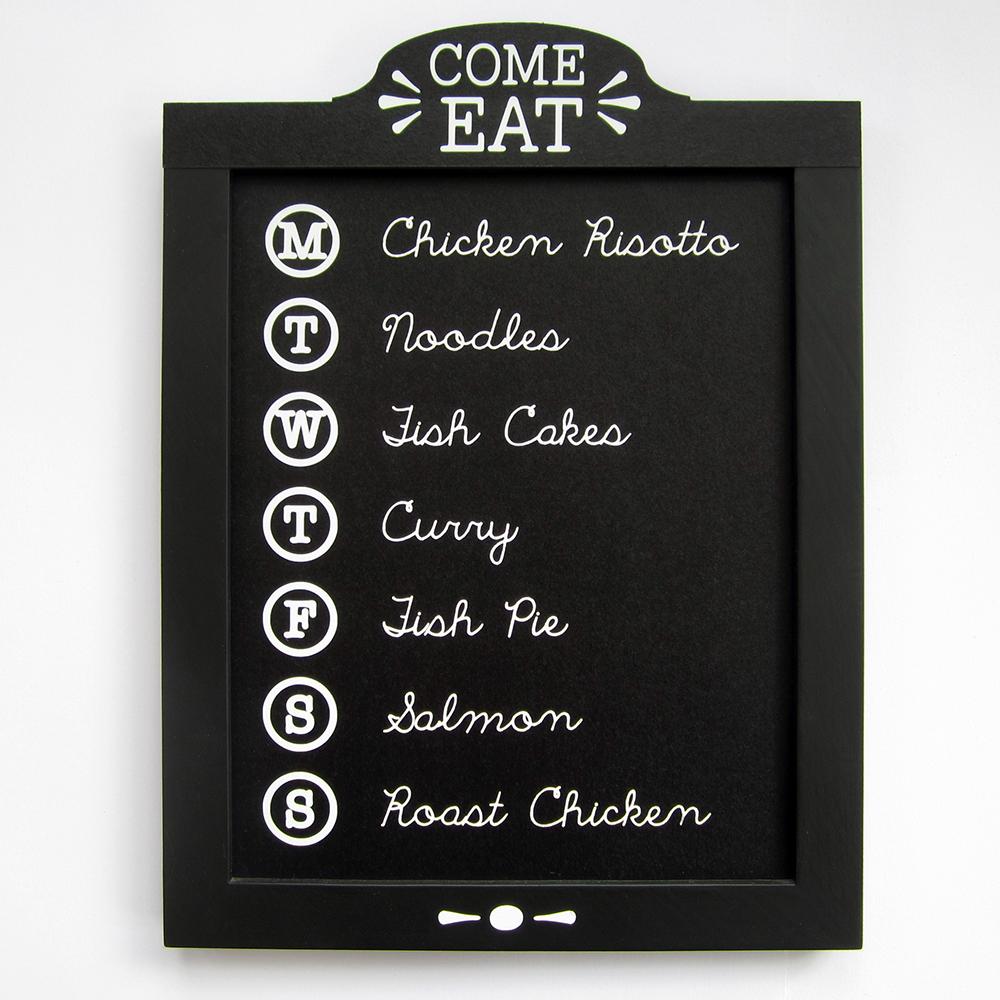 COME
EAT
M Chicken Risotto
T Noodles
W Fish Cakes
T Curry
F Fish Pie
S Salmon
S Roast Chicken